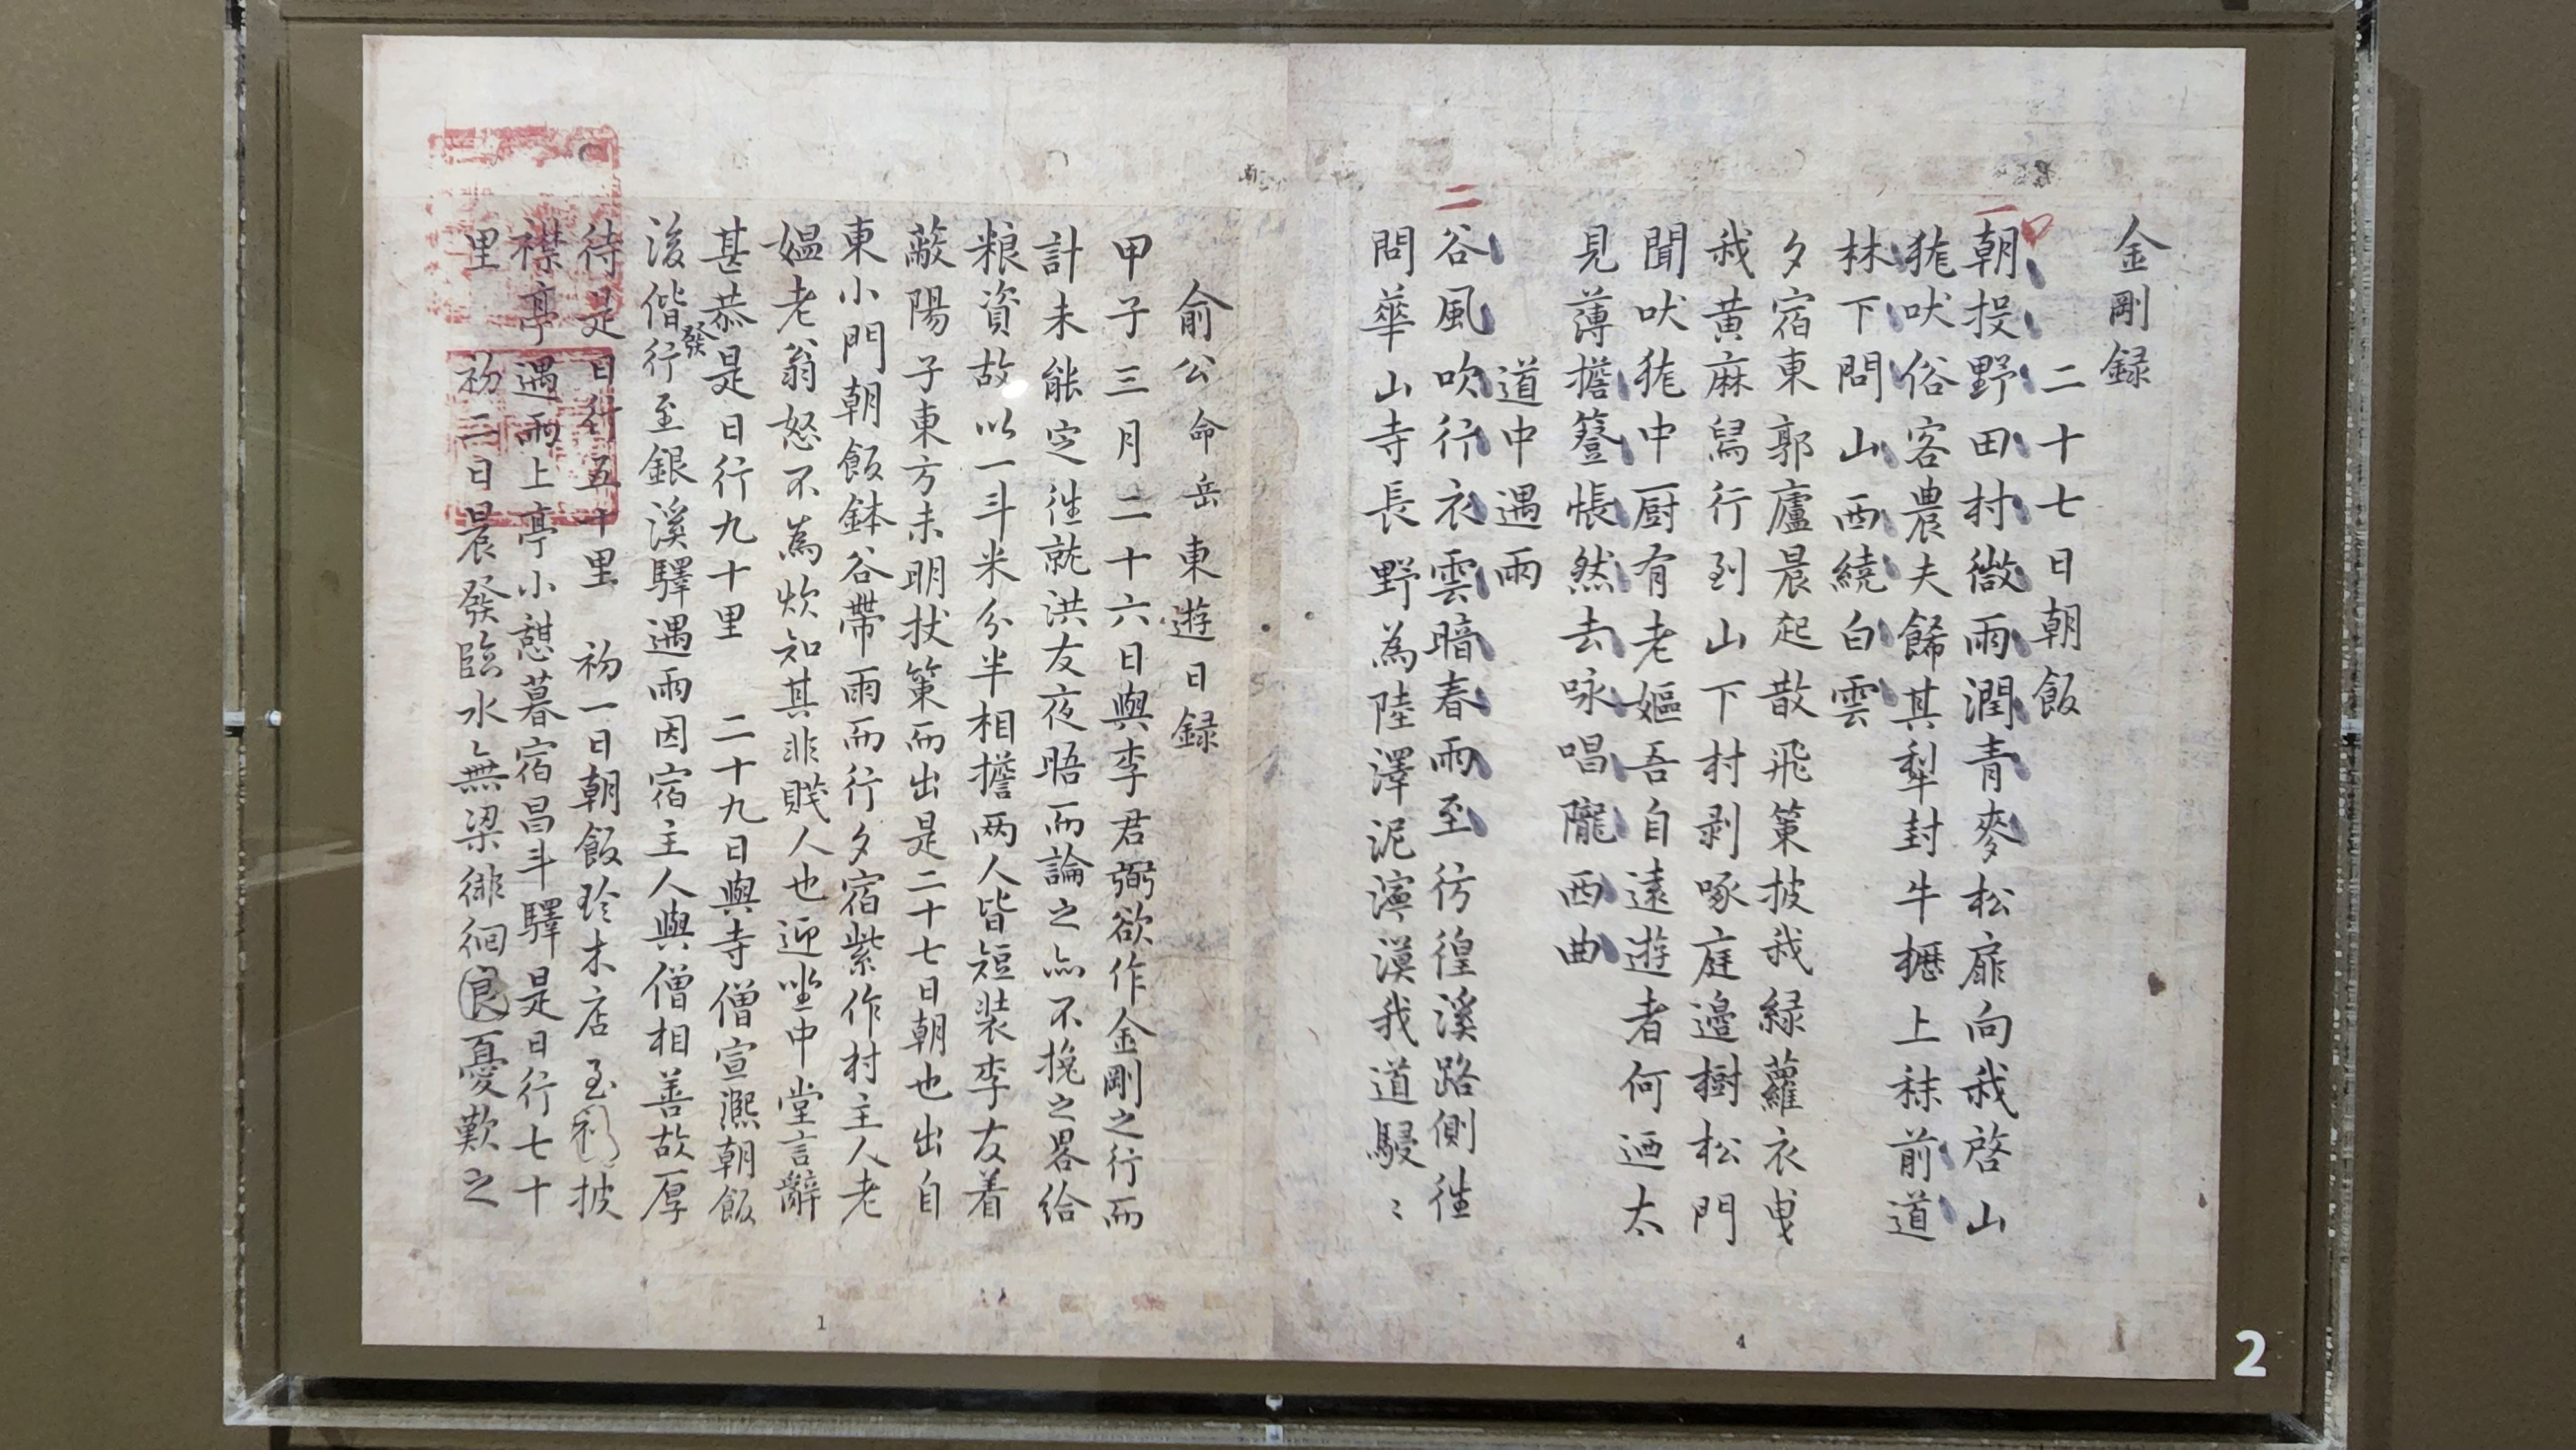 金剛録
二十七日朝飯
一朝投野田村微雨潤青麥松扉向我啓山
狵吠俗客農夫餙其犁封牛櫪上秣前道
林下問山西繞白雲
夕宿東郭廬晨起散飛策披我緑蘿衣曳
我黄麻舄行到山下村剥啄庭邊樹松門
聞吠狵中厨有老嫗吾自遠遊者何迺太
見薄擔簦悵然去咏唱隴西曲
道中遇雨
二谷風吹行衣雲暗春雨至彷徨溪路側徃
問華山寺長野為陸澤泥濘漠我道駸〻
俞公命岳東遊日録
甲子三月二十六日與李君弼欲作金剛之行而
計未能定徃就洪友夜晤而論之亦不挽之畧給
粮資故以一斗米分半相擔两人皆短装李友着
蔽陽子東方未明扙策而出是二十七日朝也出自
東小門朝飯鉢谷帶雨而行夕宿紫作村主人老
媼老翁怒不為炊知其非賤人也迎坐中堂言辭
甚恭是日行九十里 二十九日與寺僧宣熈朝飯
發
後偕行至銀溪驛遇雨因宿主人與僧相善故厚
待是日行五十里 初一日朝飯珍木店至衫披
襟亭遇雨上亭小憇暮宿昌斗驛是日行七十
里 初二日晨發臨水無梁徘徊良憂歎之
1
4
2